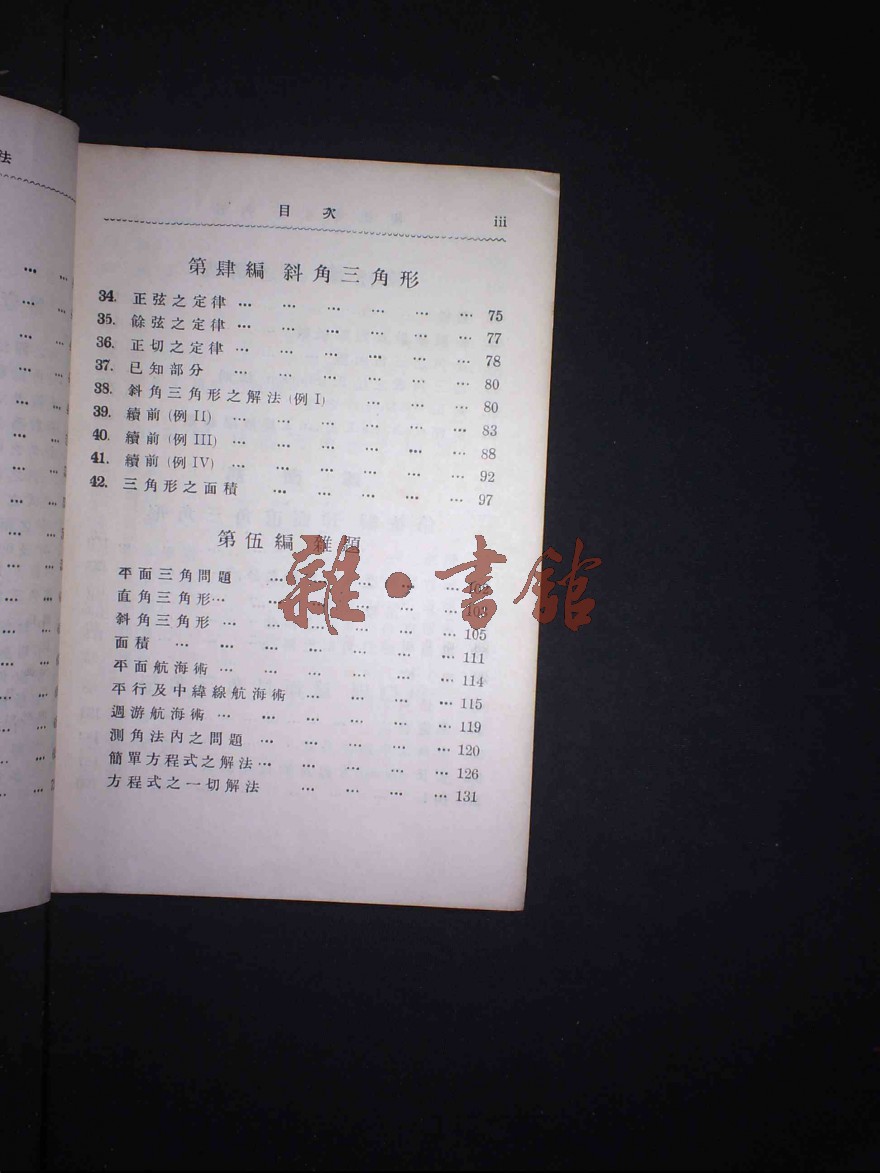 法
目次 iii
第肆編 斜角三角形
34. 正弦之定律 ... ... ... ... ... ... 75
35. 餘弦之定律 ... ... ... ... ... ... 77
36. 正切之定律 ... ... ... ... ... ... 78
37. 已知部分 ... ... ... ... ... ... 80
38. 斜角三角形之解法(例 I) ... ... ... 80
39. 續前(例 II) ... ... ... ... ... ... 83
40. 續前(例 III) ... ... ... ... ... ... 88
41. 續前(例 IV) ... ... ... ... ... ... 92
42. 三角形之面積 ... ... ... ... ... ... 97
第伍編 雜題
平面三角問題 ... ... ... ... ... 102
直角三角形 ... ... ... ... ... ...
斜角三角形 ... ... ... ... ... ... 105
面積 ... ... ... ... ... ... ... 111
平面航海術 ... ... ... ... ... ... 114
平行及中緯線航海術 ... ... ... ... 115
週游航海術 ... ... ... ... ... ... 119
測角法內之問題 ... ... ... ... ... 120
簡單方程式之解法 ... ... ... ... ... 126
方程式之一切解法 ... ... ... ... 131
雜·書館